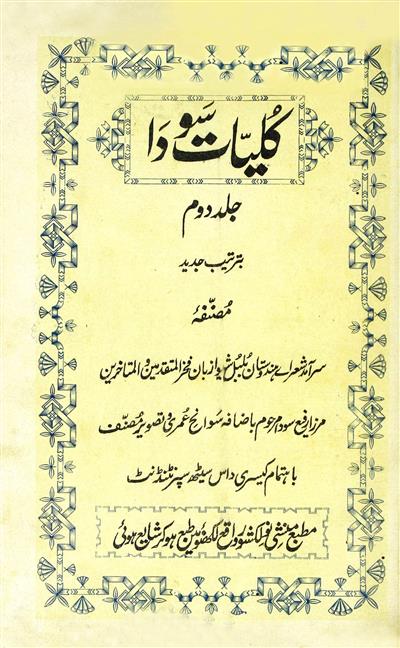 کلیات سودا
جلد دوم
بترتیب جدید
مصنّفہ
سرآمد شعراے ہندوستان بلبل شیراز زبان فخر المتقدمین والمتاخرین
مرزا رفیع سودا مرحوم باضافہ سوانح عمری و تصویر مصنّف
باہتمام کیسری داس سیٹھ سپرنٹنڈنٹ
مطبع منشی نولکشور واقع لکھنؤ میں طبع ہو کر شایع ہوئی
Rekhta.org